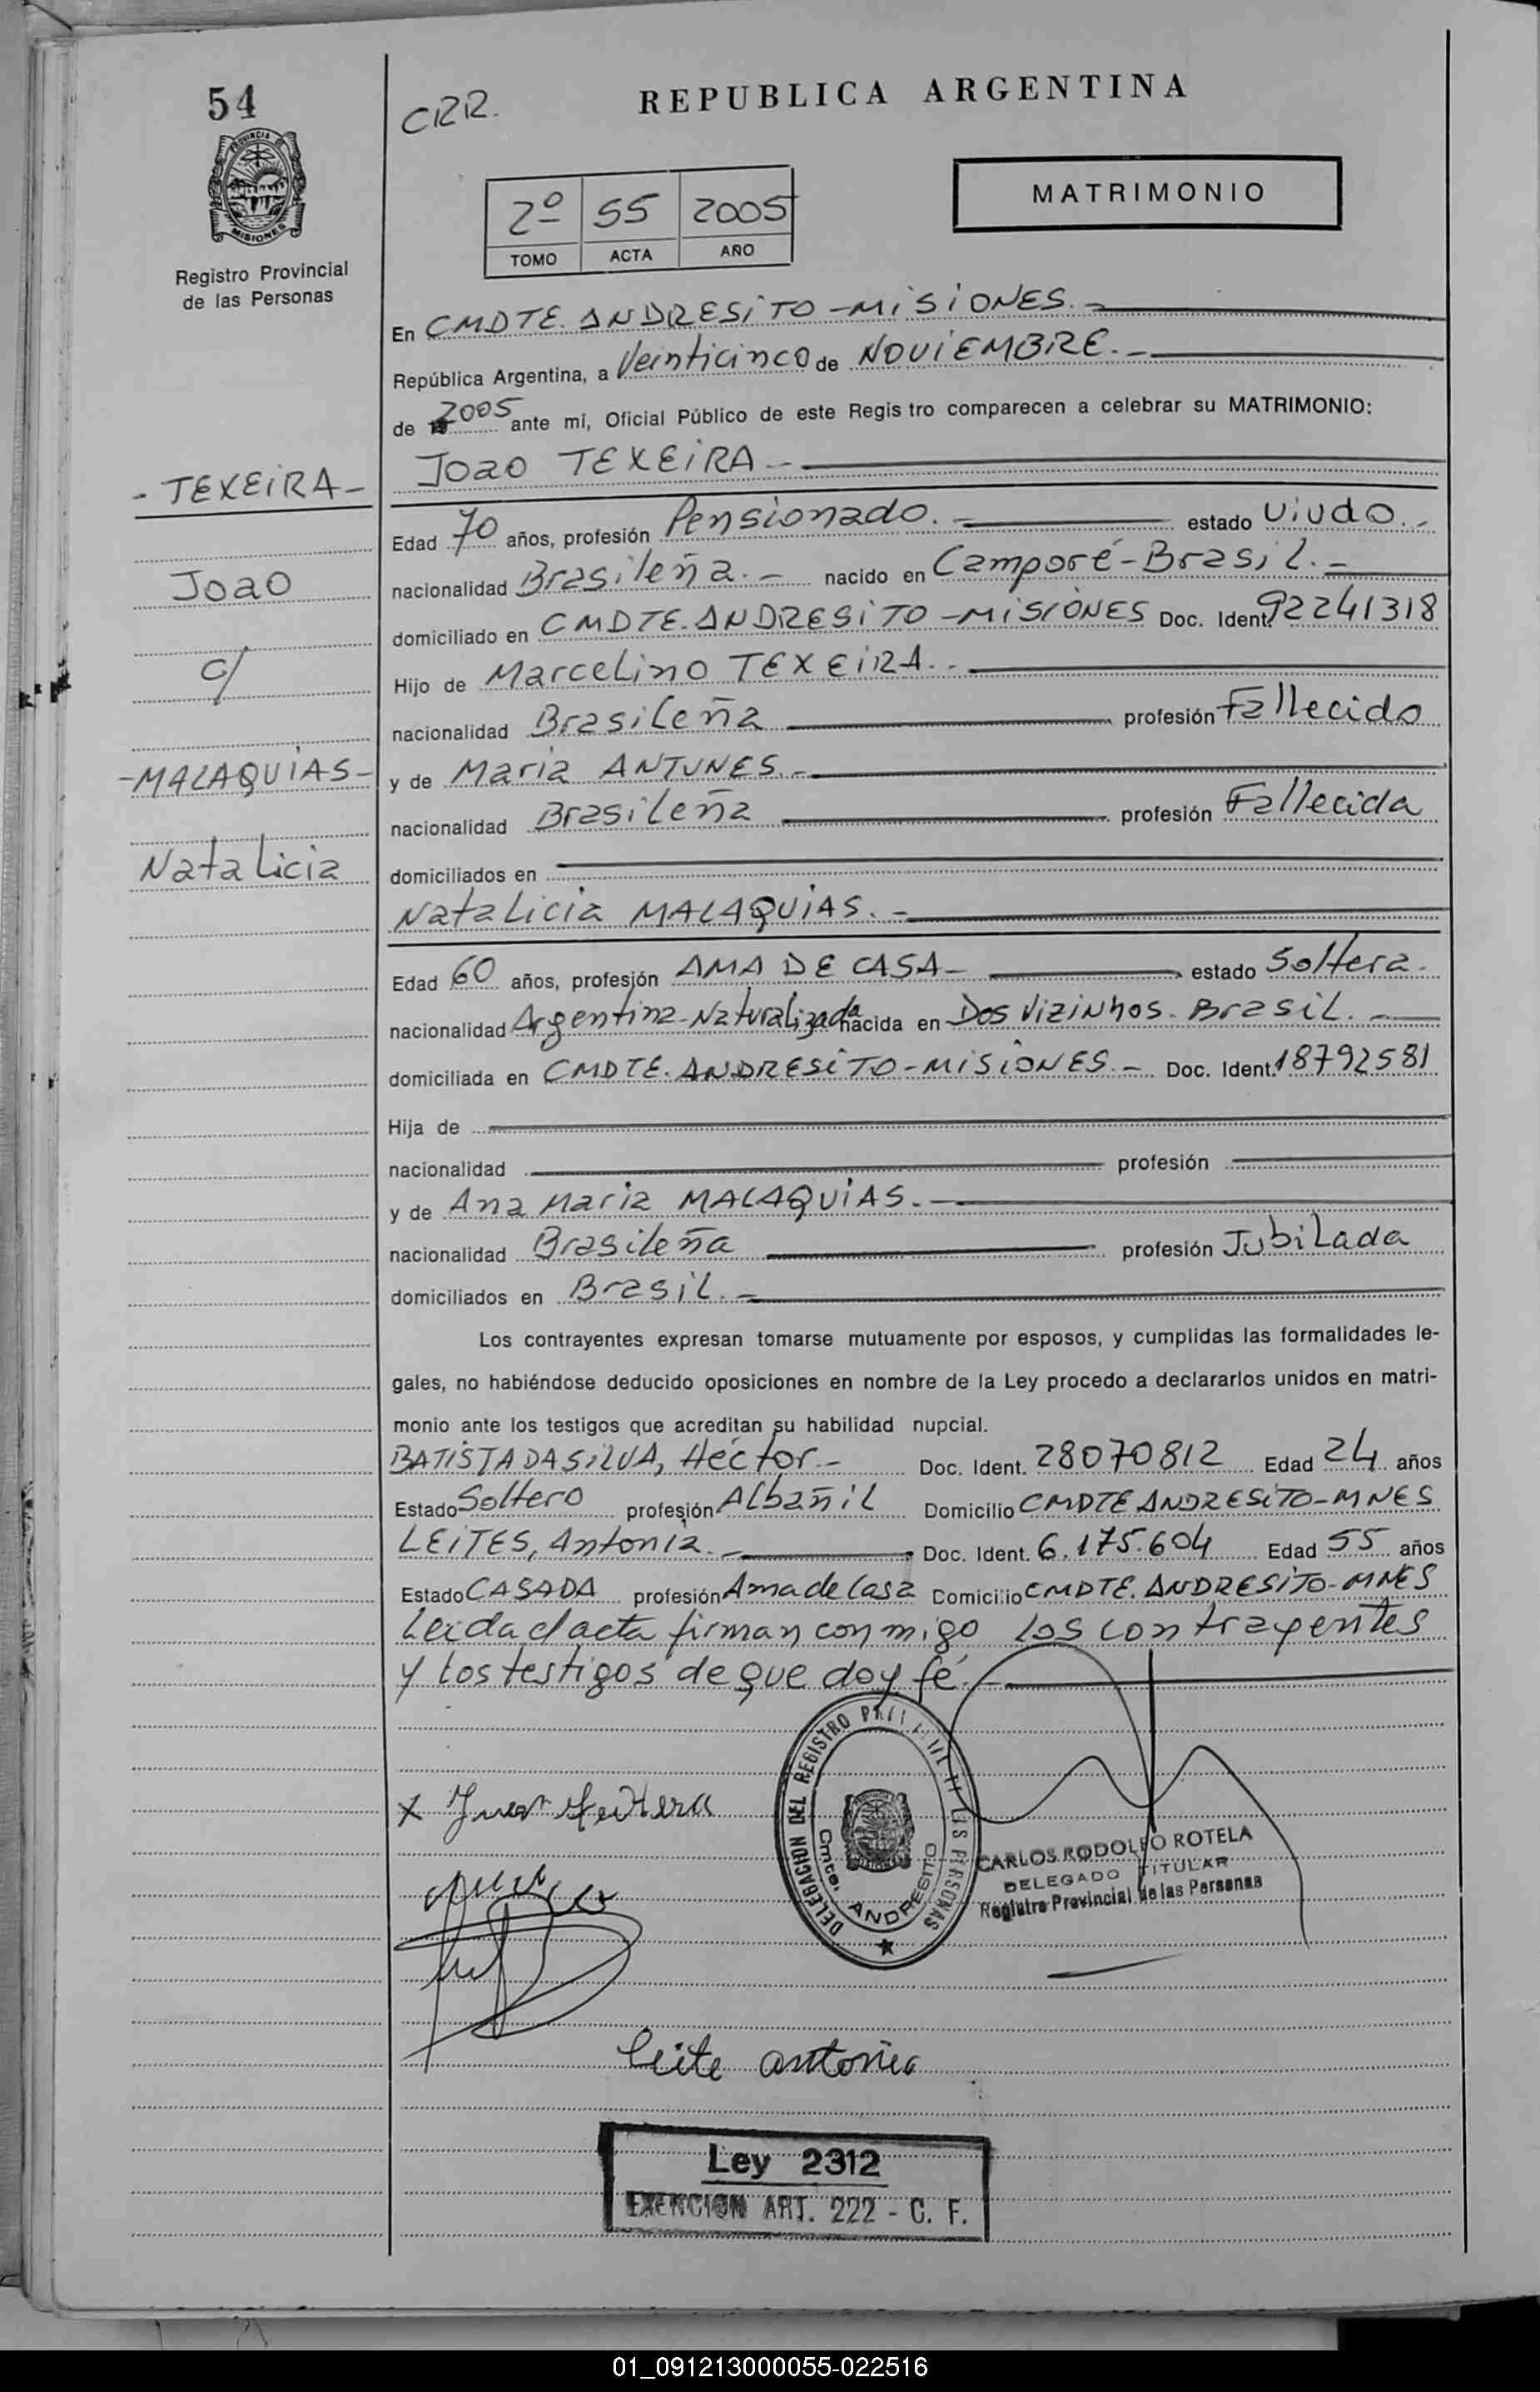 54
CRR.
REPUBLICA ARGENTINA
PROVINCIA DE
MISIONES
Registro Provincial
de las Personas
2º 55 2005
TOMO ACTA AÑO
MATRIMONIO
En CMDTE. ANDRESiTO - MiSiONES. -
República Argentina, a Veinticinco de NOViEMBRE. -
de 2005 ante mí, Oficial Público de este Regis tro comparecen a celebrar su MATRIMONIO:
- TEXEiRA -
Joao TEXEiRA -
Edad 70 años, profesión Pensionado. - estado Viudo. -
Joao
nacionalidad Brasileña. - nacido en Camporé - Brasil. -
domiciliado en CMDTE. ANDRESiTO - MiSiONES Doc. Ident. 92241318
c/
Hijo de Marcelino TEXEiRA. -
nacionalidad Brasileña profesión Fallecido
- MALAQUiAS -
y de Maria ANTUNES. -
nacionalidad Brasileña profesión Fallecida
Natalicia
domiciliados en
Natalicia MALAQUiAS. -
Edad 60 años, profesión AMA DE CASA - estado Soltera.
nacionalidad Argentina - Naturalizada nacida en Dos Vizinhos - Brasil. -
domiciliada en CMDTE. ANDRESiTO - MiSiONES. - Doc. Ident. 18792581
Hija de
nacionalidad profesión
y de Ana Maria MALAQUiAS. -
nacionalidad Brasileña profesión Jubilada
domiciliados en Brasil. -
Los contrayentes expresan tomarse mutuamente por esposos, y cumplidas las formalidades le-
gales, no habiéndose deducido oposiciones en nombre de la Ley procedo a declararlos unidos en matri-
monio ante los testigos que acreditan su habilidad nupcial.
BATiSTA DA SiLVA, Héctor. - Doc. Ident. 28070812 Edad 24 años
Estado Soltero profesión Albañil Domicilio CMDTE ANDRESiTO - MNES
LEiTES, Antonia. - Doc. Ident. 6.175.604 Edad 55 años
Estado CASADA profesión Ama de Casa Domicilio CMDTE. ANDRESiTO - MNES
Leida el acta firman conmigo los contrayentes
y los testigos de que doy fé. -
DELEGACION DEL REGISTRO LAS PERSONAS
Cmte. ANDRESITO
CARLOS RODOLFO ROTELA
DELEGADO TITULAR
Registro Provincial de las Personas
X
Leite antonia
Ley 2312
EXENCION ART. 222 - C. F.
01_091213000055-022516